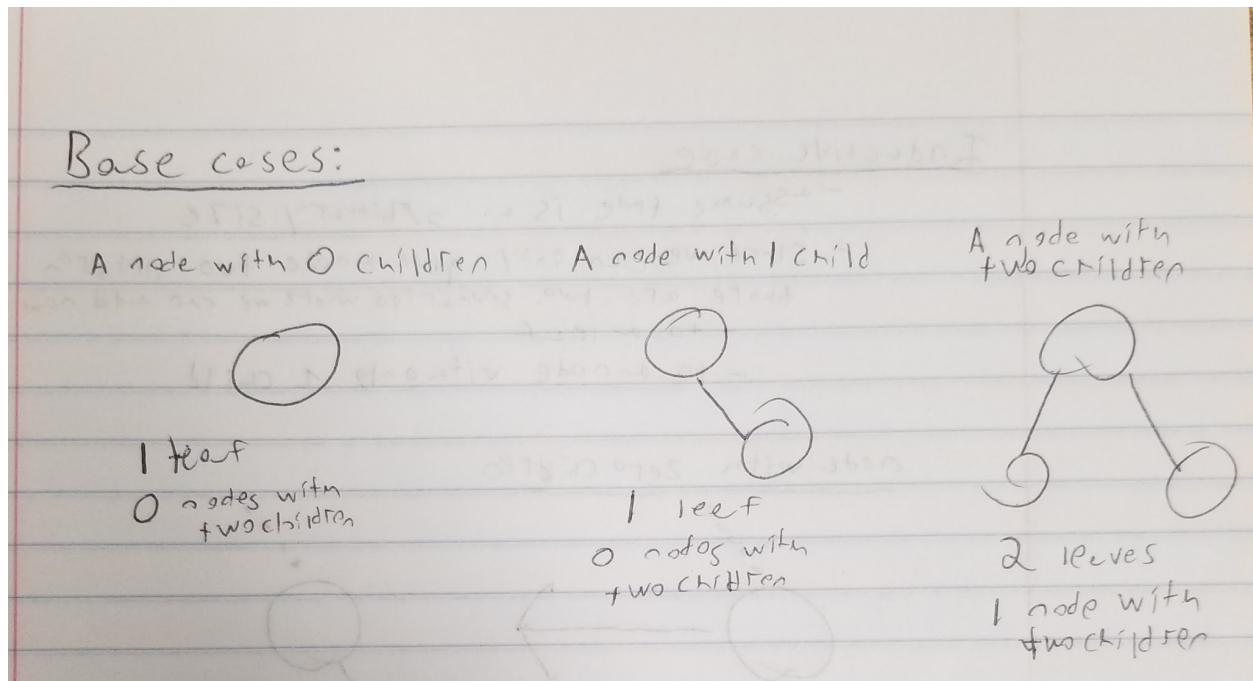 Base cases:
A node with 0 children
1 leaf
0 nodes with
two children
A node with 1 child
1 leef
0 nodes with
two children
A node with
two children
2 leaves
1 node with
two children